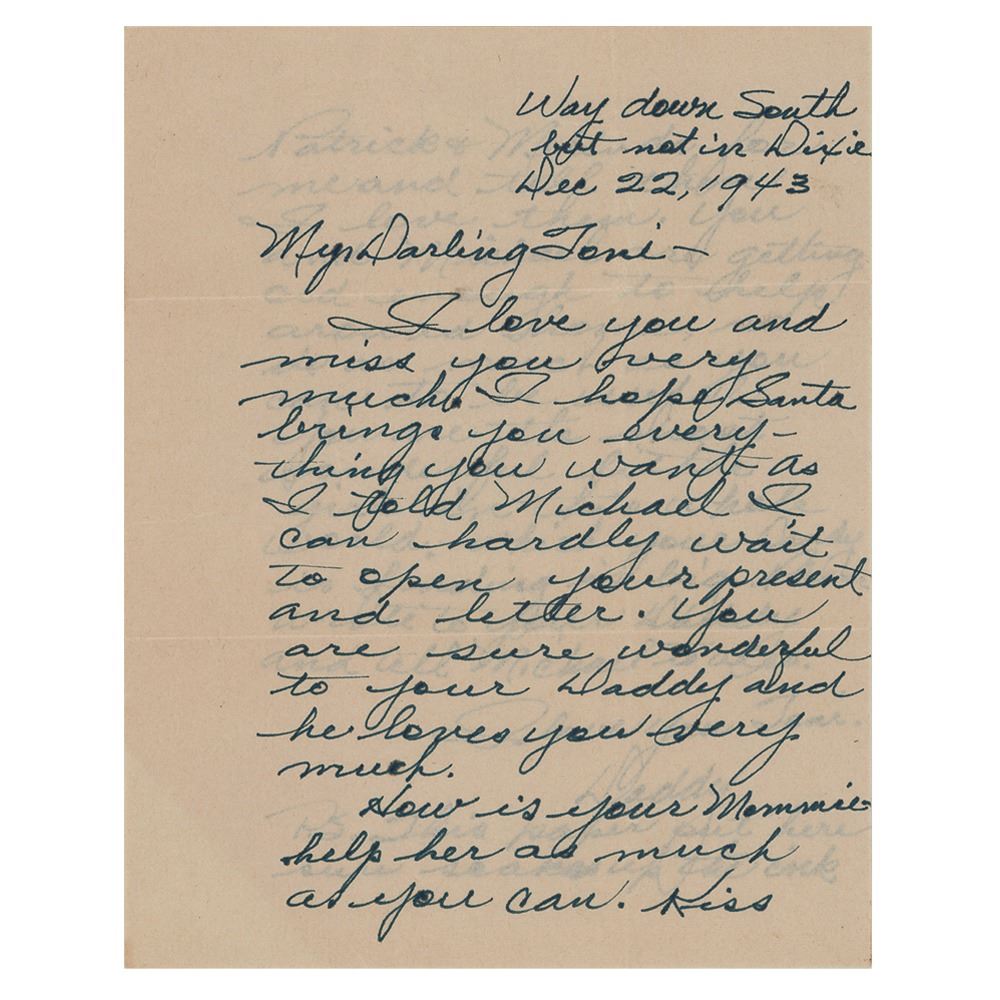 Way down South
but not in Dixie
Dec 22, 1943
My Darling Toni -
I love you and
miss you very
much. I hope Santa
brings you every-
thing you want as
I told Michael I
can hardly wait
to open your present
and letter. You
are sure wonderful
to your Daddy and
he loves you very
much.
How is your Mommie
help her as much
as you can. Kiss